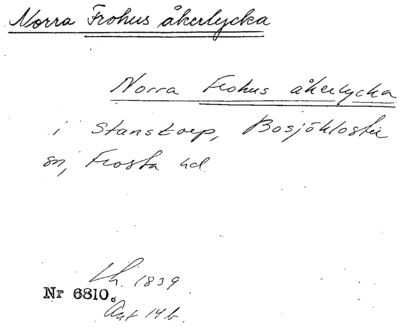 Norra Frohus åkerlycka
Norra Frohus åkerlycka
i Stanstorp, Bosjökloster
sn, Frosta hd
Lh. 1839
Nr 6810.
Akt 14 b.